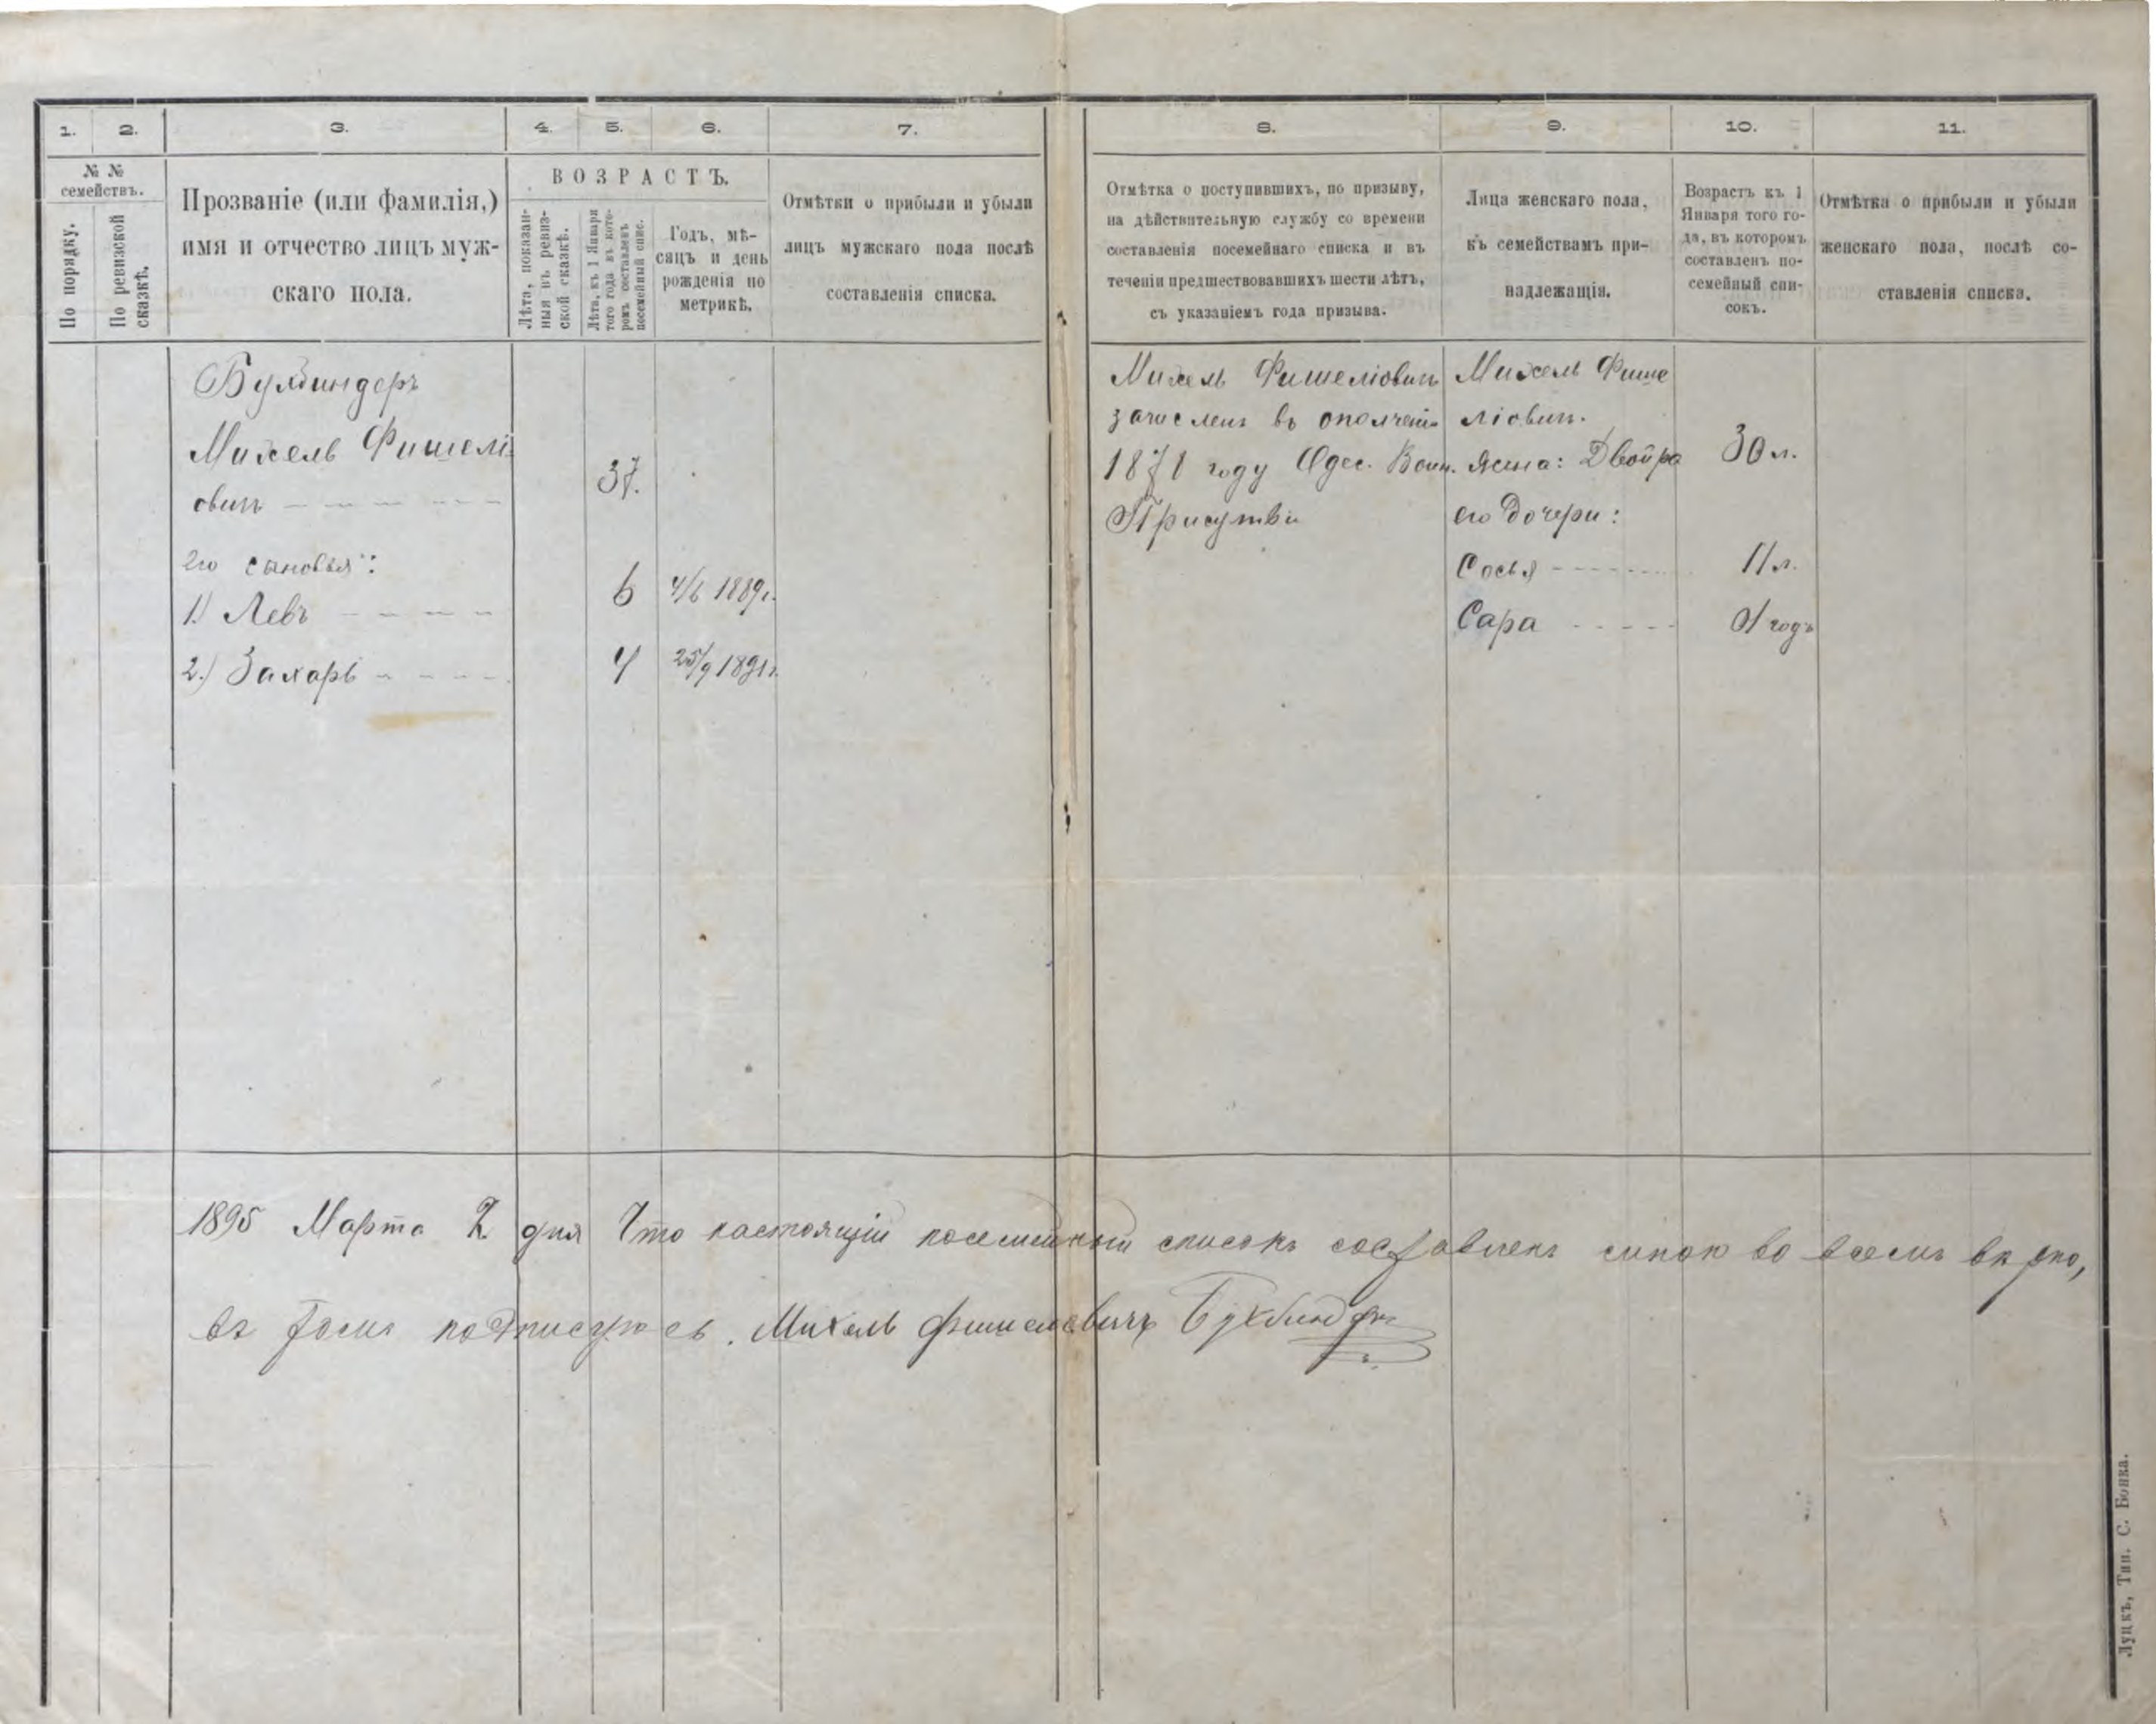 1.
2.
3.
4.
5.
6.
7.
8.
9.
10.
11.
№ №
семействъ.
По порядку.
По ревизской
сказкѣ.
Прозваніе (или фамилія,)
имя и отчество лицъ муж-
скаго пола.
ВОЗРАСТЪ.
Лѣта, показан-
ныя въ ревиз-
ской сказкѣ.
Лѣта, къ 1 Января
того года въ кото-
ромъ составленъ
посемейный спис.
Годъ, мѣ-
сяцъ и день
рожденія по
метрикѣ.
Отмѣтки о прибыли и убыли
лицъ мужскаго пола послѣ
составленія списка.
Отмѣтка о поступившихъ, по призыву,
на дѣйствительную службу со времени
составленія посемейнаго списка и въ
теченіи предшествовавшихъ шести лѣтъ,
съ указаніемъ года призыва.
Лица женскаго пола,
къ семействамъ при-
надлежащія.
Возрастъ къ 1
Января того го-
да, въ которомъ
составленъ по-
семейный спи-
сокъ.
Отмѣтка о прибыли и убыли
женскаго пола, послѣ со-
ставленія списка.
Бухбиндеръ
Михель Фишелі
овичъ 37.
его сыновья:
1) Левъ 6 4/6 1889г.
2.) Захарь 4 25/9 1891г.
Михель Фишеліовичъ
зачисленъ въ ополчен.
1878 году Одес. Воин.
Присутстви
Михель Фише
ліовичъ.
Жена: Двойра 30 л.
его дочери:
Сосья 11 л.
Сара 1 годъ
1895 Марта 2 дня Что настоящій посемейный списокъ составленъ мною во всемъ вѣрно,
въ томъ подписуюсь. Михель Фишелевичъ Бухбиндеръ
Луцкъ, Тип. С. Бонка.